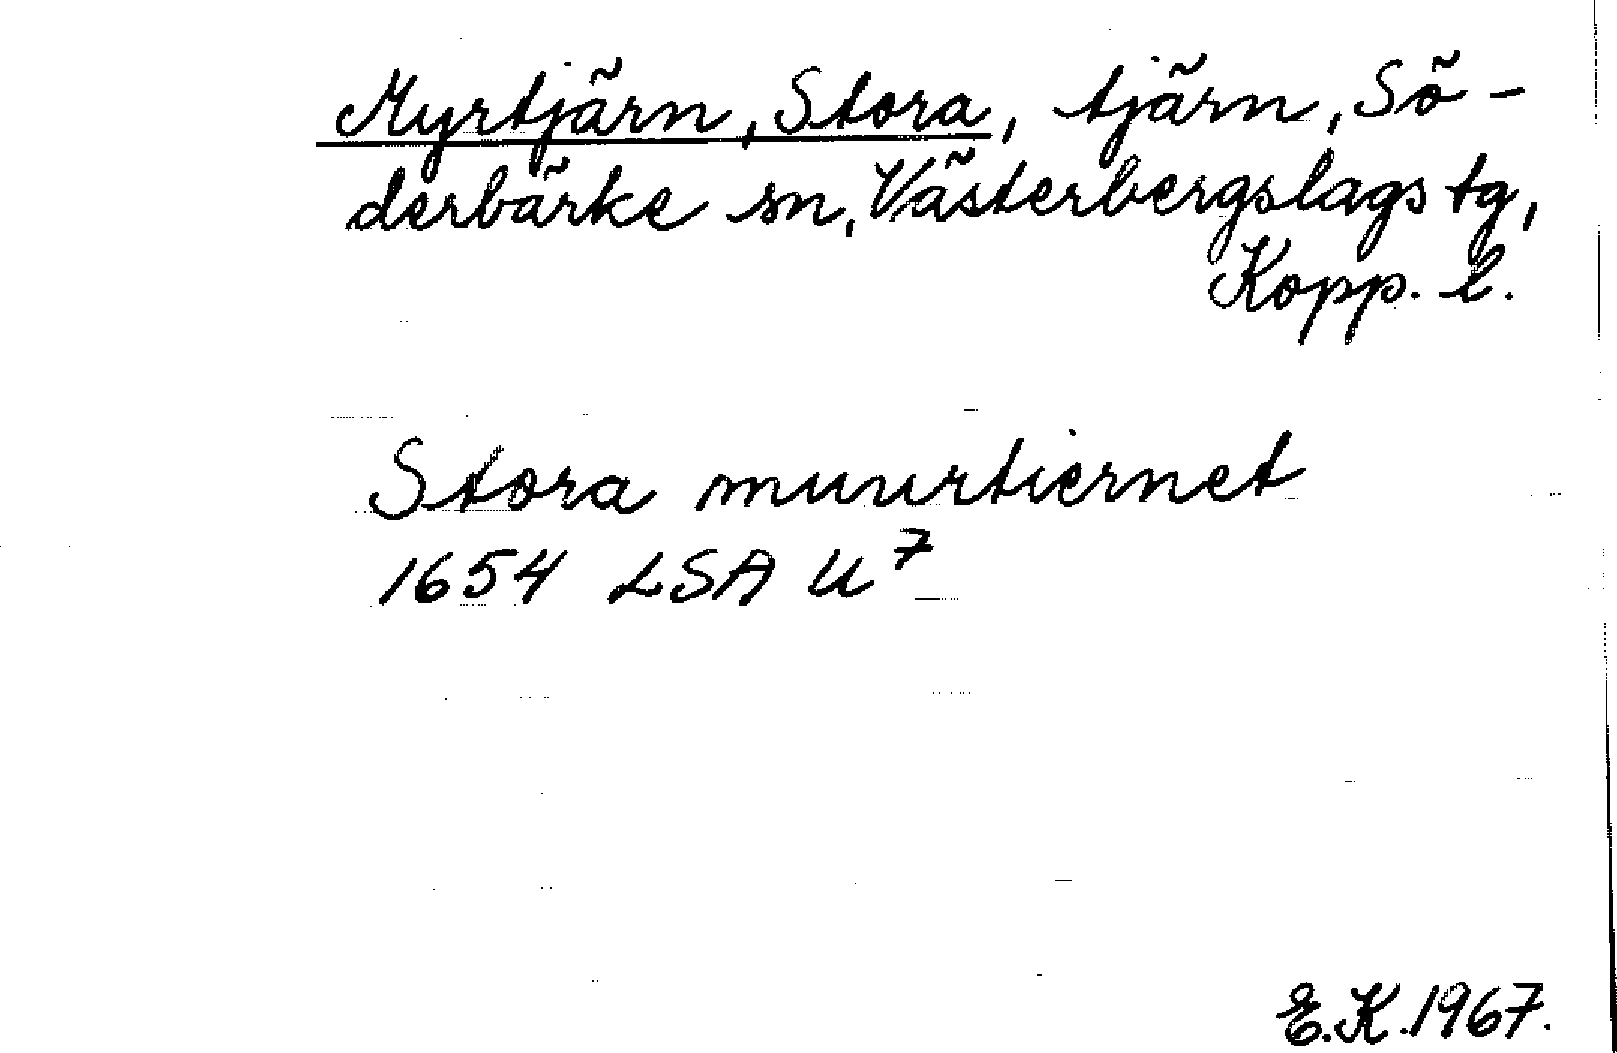 Myrtjärn, Stora, tjärn, Sö-
derbärke sn, Västerbergslags tg,
Kopp. l.
Stora muurtiernet
1654 LSA U⁷
E.K. 1967.